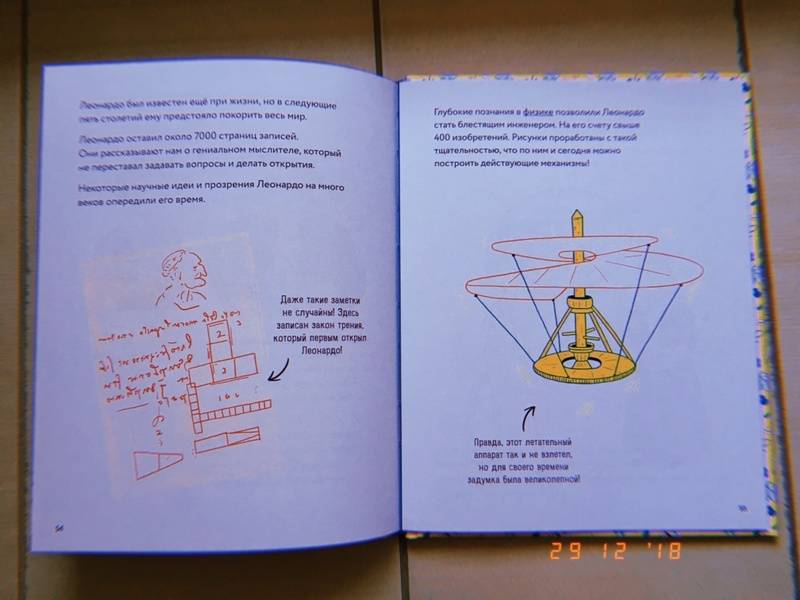 Леонардо был известен ещё при жизни, но в следующие
пять столетий ему предстояло покорить весь мир.
Леонардо оставил около 7000 страниц записей.
Они рассказывают нам о гениальном мыслителе, который
не переставал задавать вопросы и делать открытия.
Некоторые научные идеи и прозрения Леонардо на много
веков опередили его время.
Даже такие заметки
не случайны! Здесь
записан закон трения,
который первым открыл
Леонардо!
2
3
54
Глубокие познания в физике позволили Леонардо
стать блестящим инженером. На его счету свыше
400 изобретений. Рисунки проработаны с такой
тщательностью, что по ним и сегодня можно
построить действующие механизмы!
Правда, этот летательный
аппарат так и не взлетел,
но для своего времени
задумка была великолепной!
55
29 12 '18